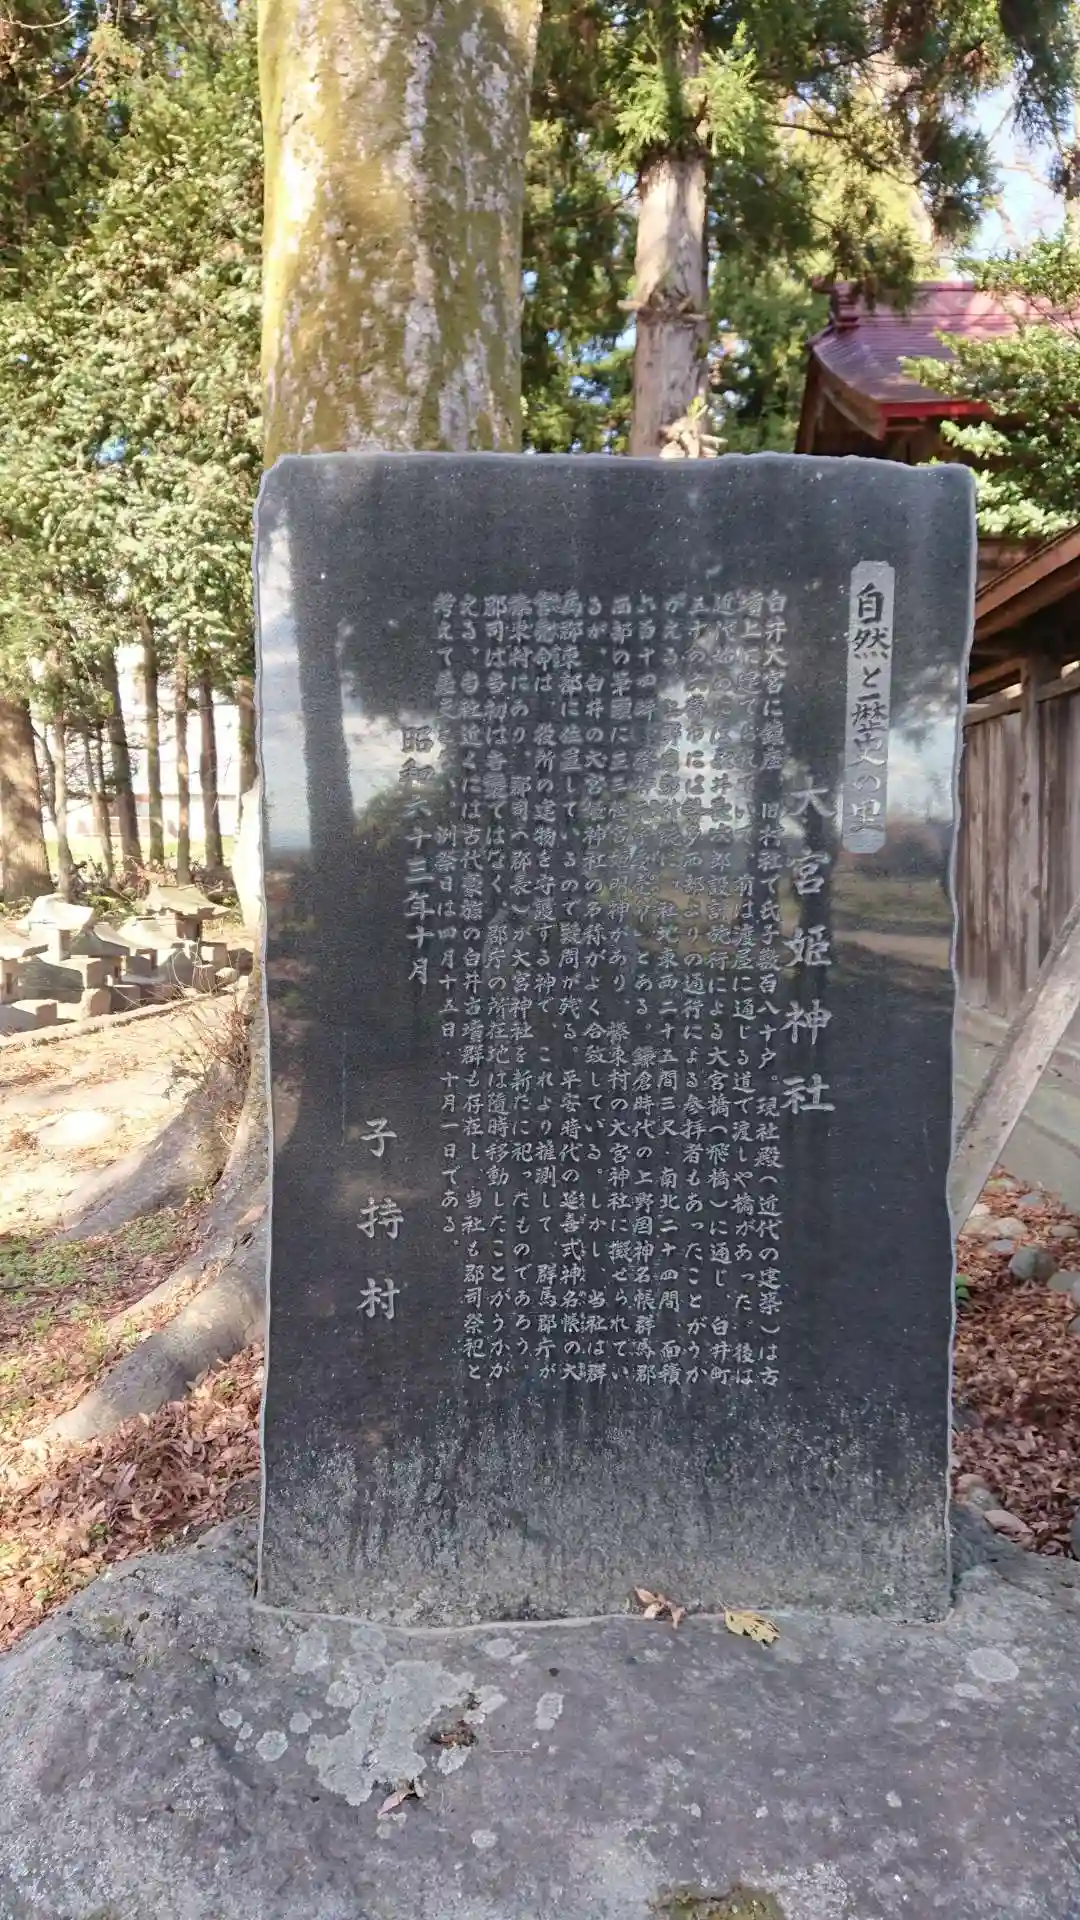 自然と歴史の里
大宮姫神社
白井大宮に鎮座 旧村社で氏子数百八十戸。現社殿(近代の建築)は古
墳上に建てられていて、前は渡屋に通じる道で渡しや橋があった。後は
近代始めには 井 郎設計施行による大宮橋(飛橋)に通じ、白井町
三 の 市には 西部よりの通行による参拝者もあったことがうか
がえる。上野国 社地東西二十五間三尺・南北二十四間、面積
百十四 とある。鎌倉時代の上野国神名帳群馬郡
西部の筆頭に正三位宮姫明神があり、榛東村の大宮神社に擬せられてい
るが、白井の大宮姫神社の名称がよく合致している。しかし、当社は群
馬郡東部に位置しているので疑問が残る。平安時代の延喜式神名帳の大
宮売命は、役所の建物を守護する神で、これより推測して、群馬郡庁が
榛東村にあり、郡司(郡長)が大宮神社を新たに祀ったものであろう。
郡司は当初は世襲ではなく、郡庁の所在地は随時移動したことがうかが
える。当社近くには古代豪族の白井古墳群も存在し、当社も郡司祭祀と
考えて差支えない。例祭日は四月十五日・十月一日である。
昭和六十三年十月
子持村